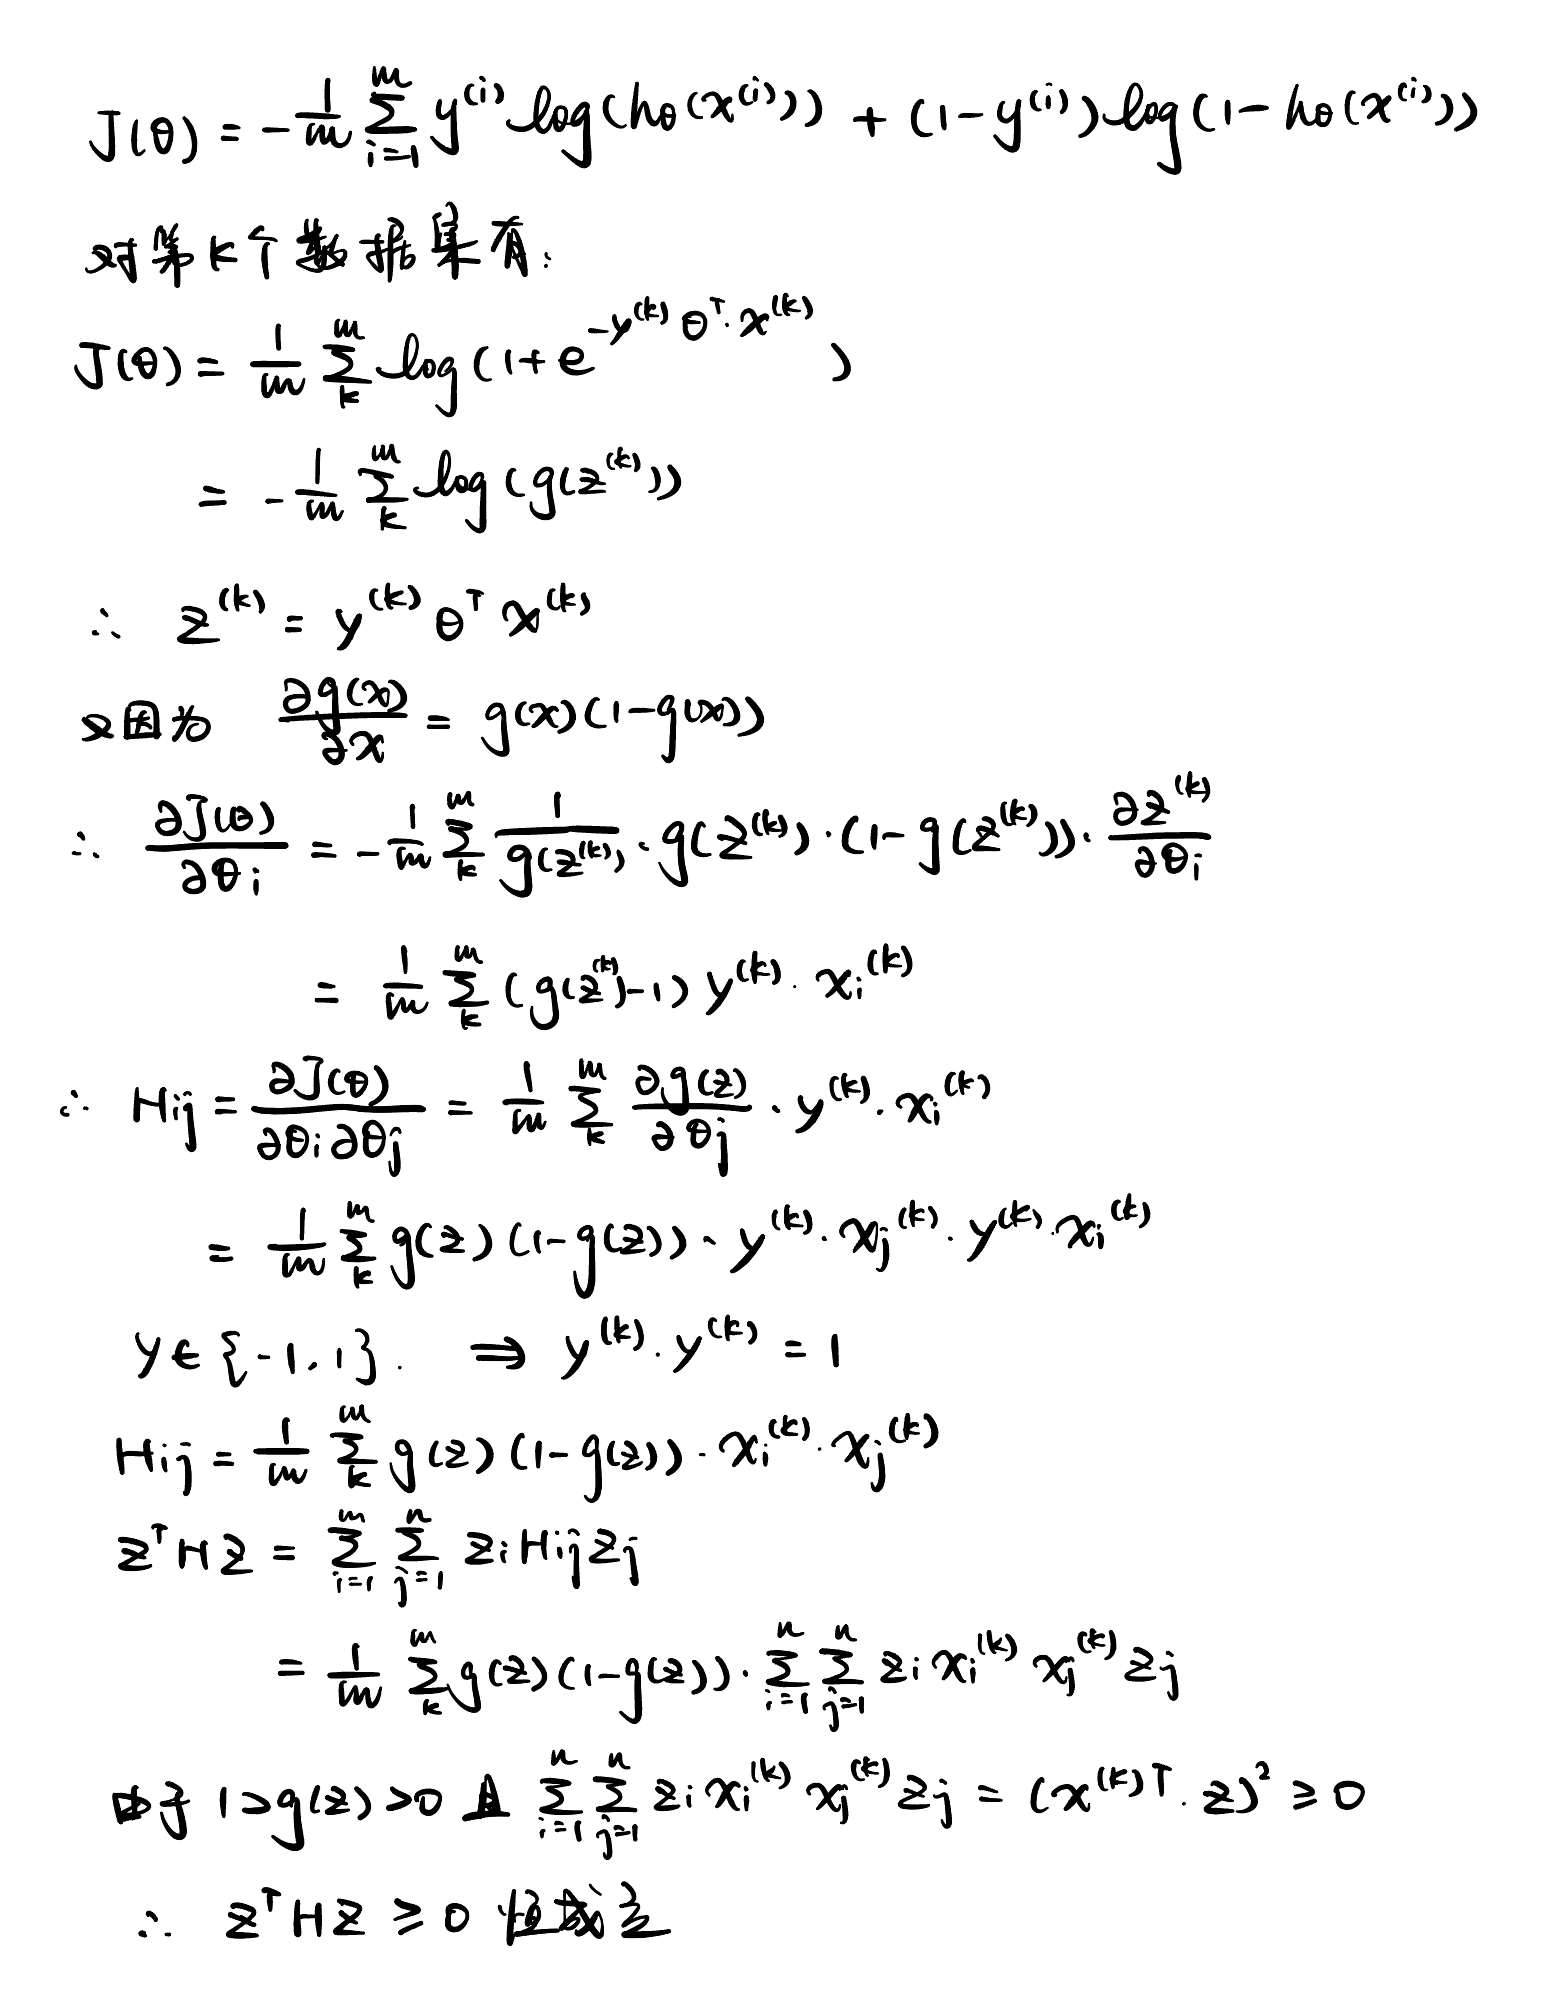 J(θ) = -1/m Σ_{i=1}^{m} y^{(i)} log(h_θ(x^{(i)})) + (1-y^{(i)}) log(1-h_θ(x^{(i)}))
对第k个数据集有:
J(θ) = 1/m Σ_k^m log(1+e^{-y^{(k)} θ^T·x^{(k)}})
= -1/m Σ_k^m log(g(z^{(k)}))
∴ z^{(k)} = y^{(k)} θ^T x^{(k)}
又因为 ∂g(x)/∂x = g(x)(1-g(x))
∴ ∂J(θ)/∂θ_i = -1/m Σ_k^m 1/g(z^{(k)}) · g(z^{(k)}) · (1-g(z^{(k)})) · ∂z^{(k)}/∂θ_i
= 1/m Σ_k^m (g(z^{(k)})-1) y^{(k)} · x_i^{(k)}
∴ H_{ij} = ∂J(θ)/∂θ_i∂θ_j = 1/m Σ_k^m ∂g(z)/∂θ_j · y^{(k)} · x_i^{(k)}
= 1/m Σ_k^m g(z)(1-g(z)) · y^{(k)} · x_j^{(k)} · y^{(k)} · x_i^{(k)}
y∈{-1,1}. ⇒ y^{(k)} · y^{(k)} = 1
H_{ij} = 1/m Σ_k^m g(z)(1-g(z)) · x_i^{(k)} · x_j^{(k)}
z^T H z = Σ_{i=1}^{m} Σ_{j=1}^{n} z_i H_{ij} z_j
= 1/m Σ_k^m g(z)(1-g(z)) · Σ_{i=1}^{n} Σ_{j=1}^{n} z_i x_i^{(k)} x_j^{(k)} z_j
由于 1>g(z)>0 且 Σ_{i=1}^{n} Σ_{j=1}^{n} z_i x_i^{(k)} x_j^{(k)} z_j = (x^{(k)T}·z)^2 ≥ 0
∴ z^T H z ≥ 0 恒成立